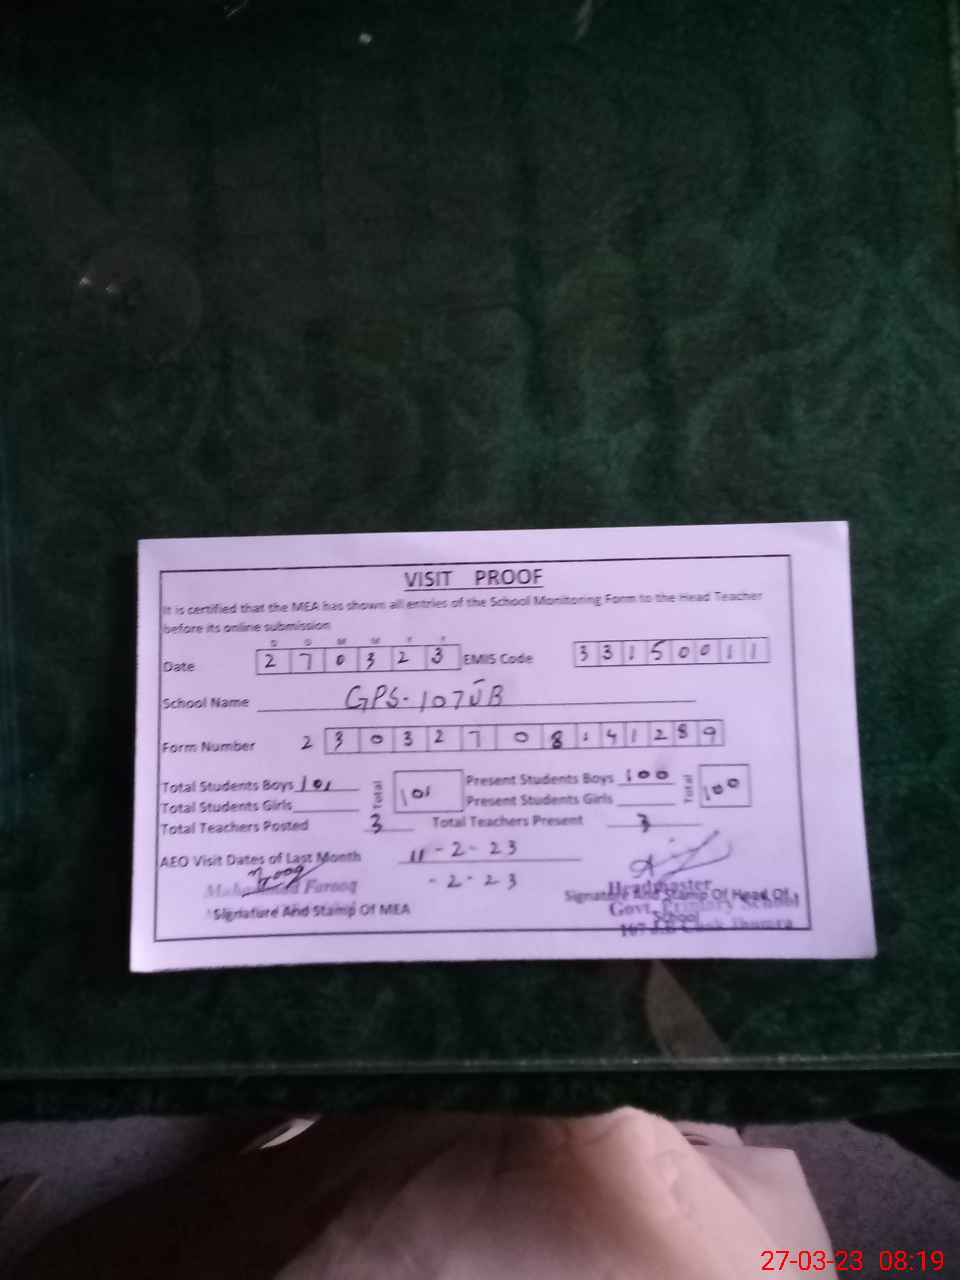 VISIT PROOF
It is certified that the MEA has shown all entries of the School Monitoring Form to the Head Teacher
before its online submission
D D M M Y Y
Date 2 7 0 3 2 3 EMIS Code 3 3 1 5 0 0 1 1
School Name GPS-107JB
Form Number 2 3 0 3 2 7 0 8 1 4 1 2 8 9
Total Students Boys 101 Total 101 Present Students Boys 100 Total 100
Total Students Girls Present Students Girls
Total Teachers Posted 3 Total Teachers Present 3
AEO Visit Dates of Last Month 11-2-23
-2-23
Muhammad Farooq
Signature And Stamp Of MEA
Headmaster
Signature And Stamp Of Head Of
Govt. Primary School
School
107 J.B Chak Jhumra
27-03-23 08:19